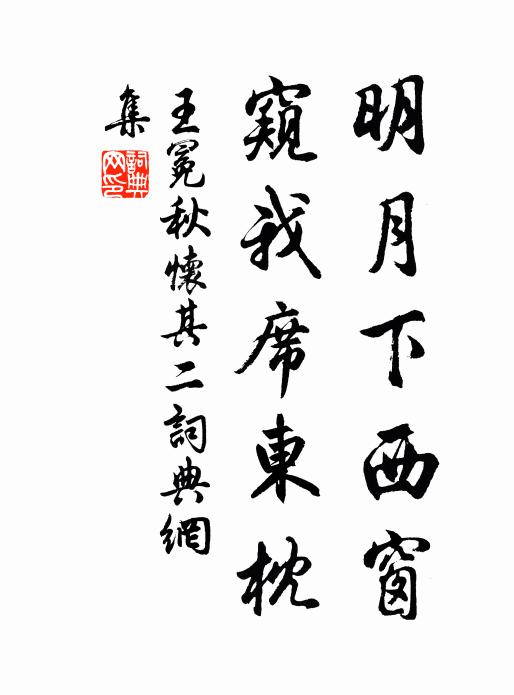 明月下西窗
窺我席東枕
王冕秋懷其二詞典網
集
詞典網印